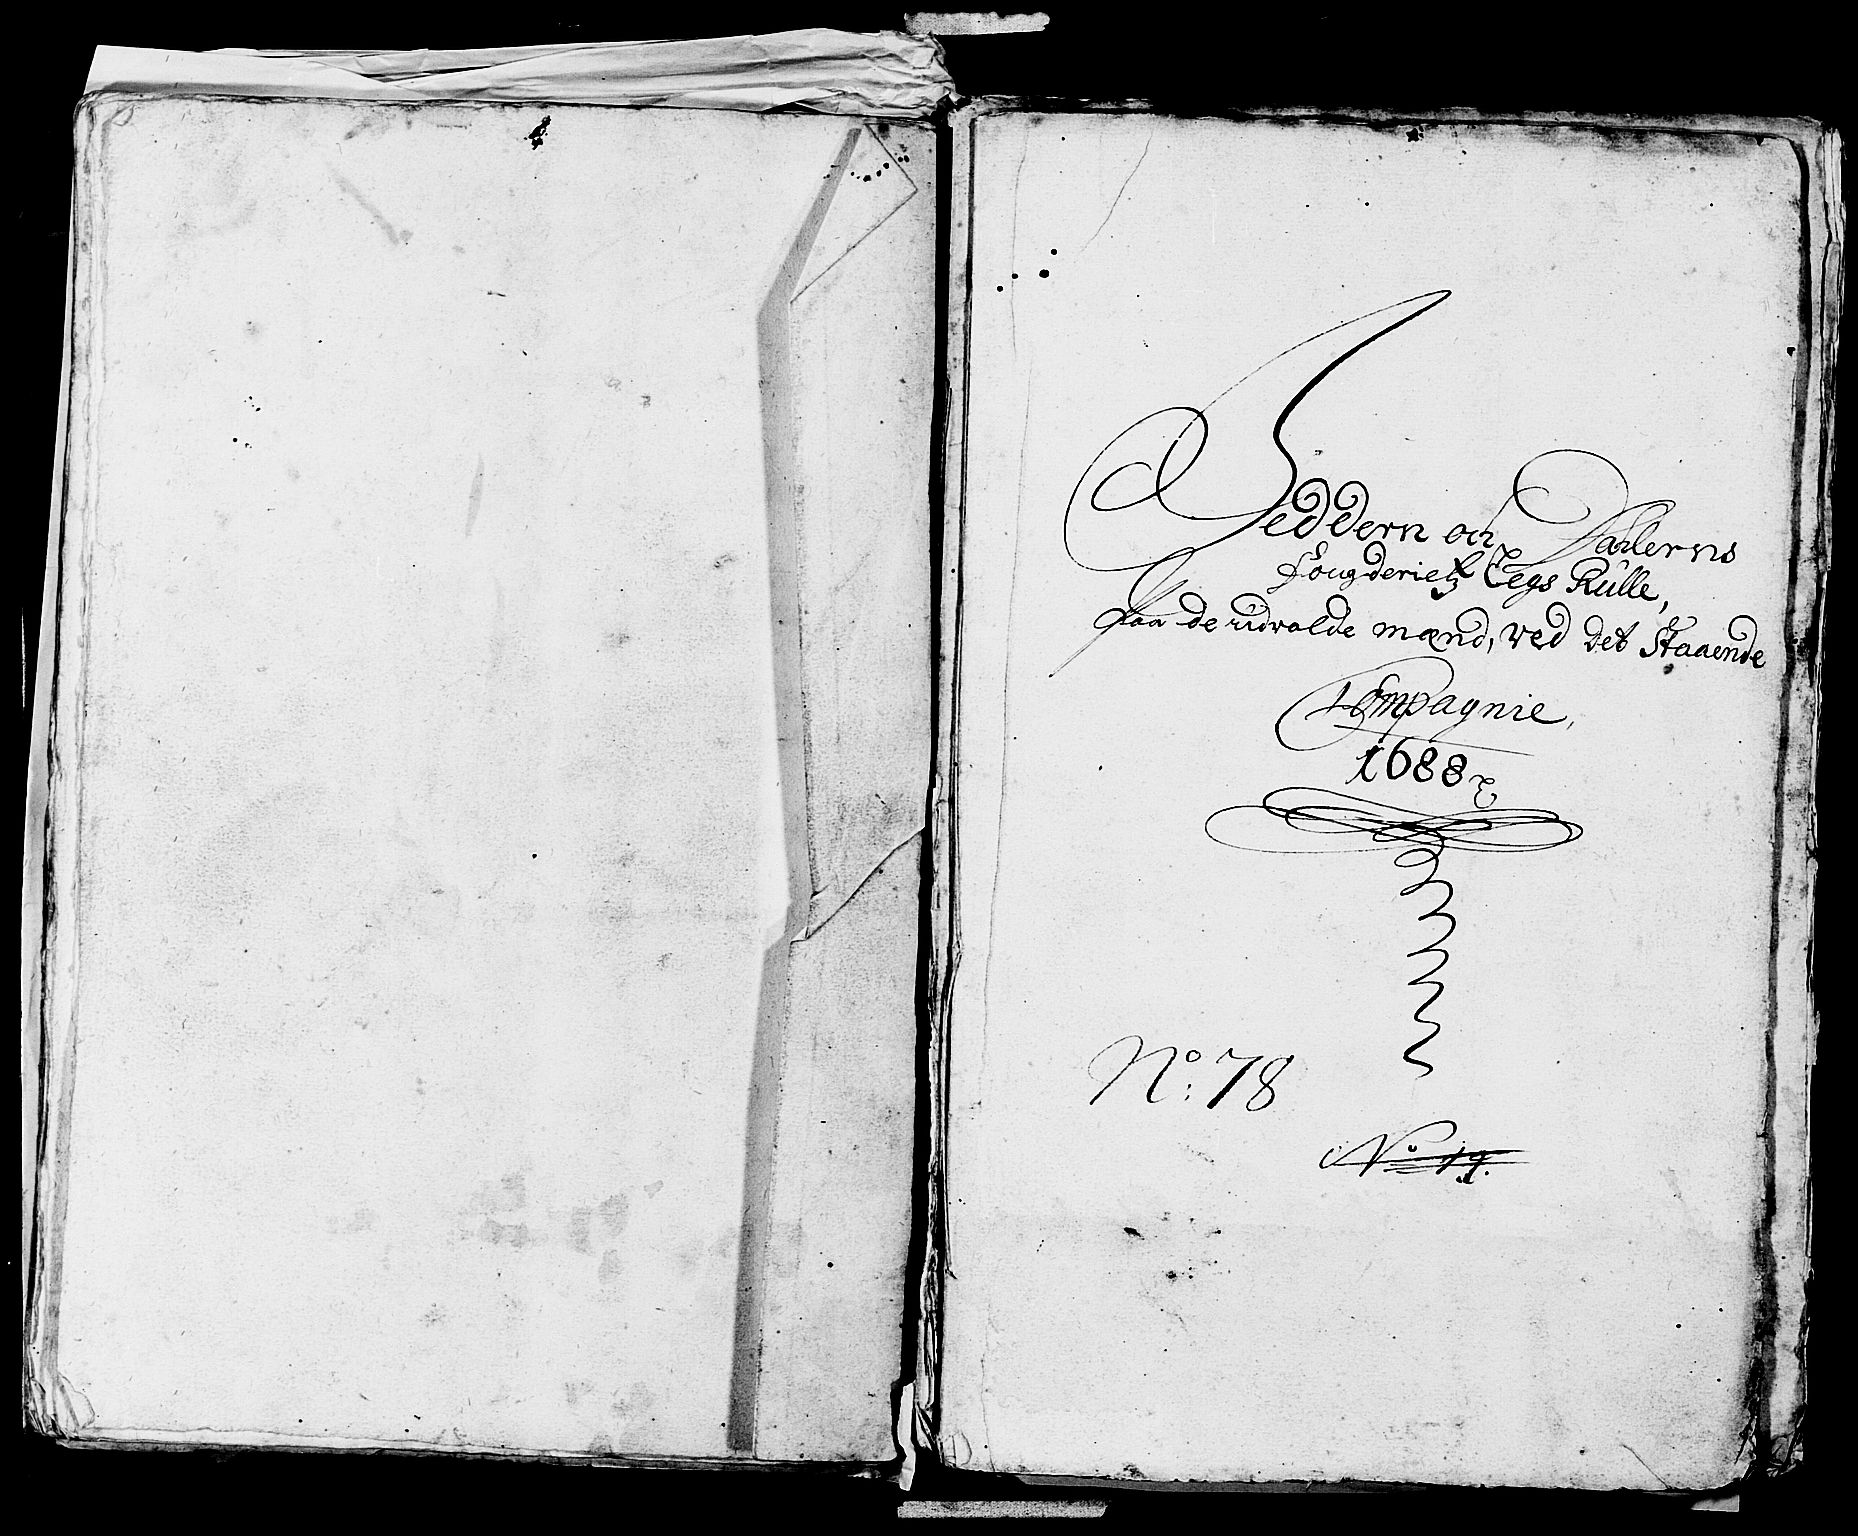 Jedderen och Dahlerns
fougderietz Legs Rulle,
paa de udvalde mænd, ved det Staaende
Compagnie,
1688
No: 78
No 19.